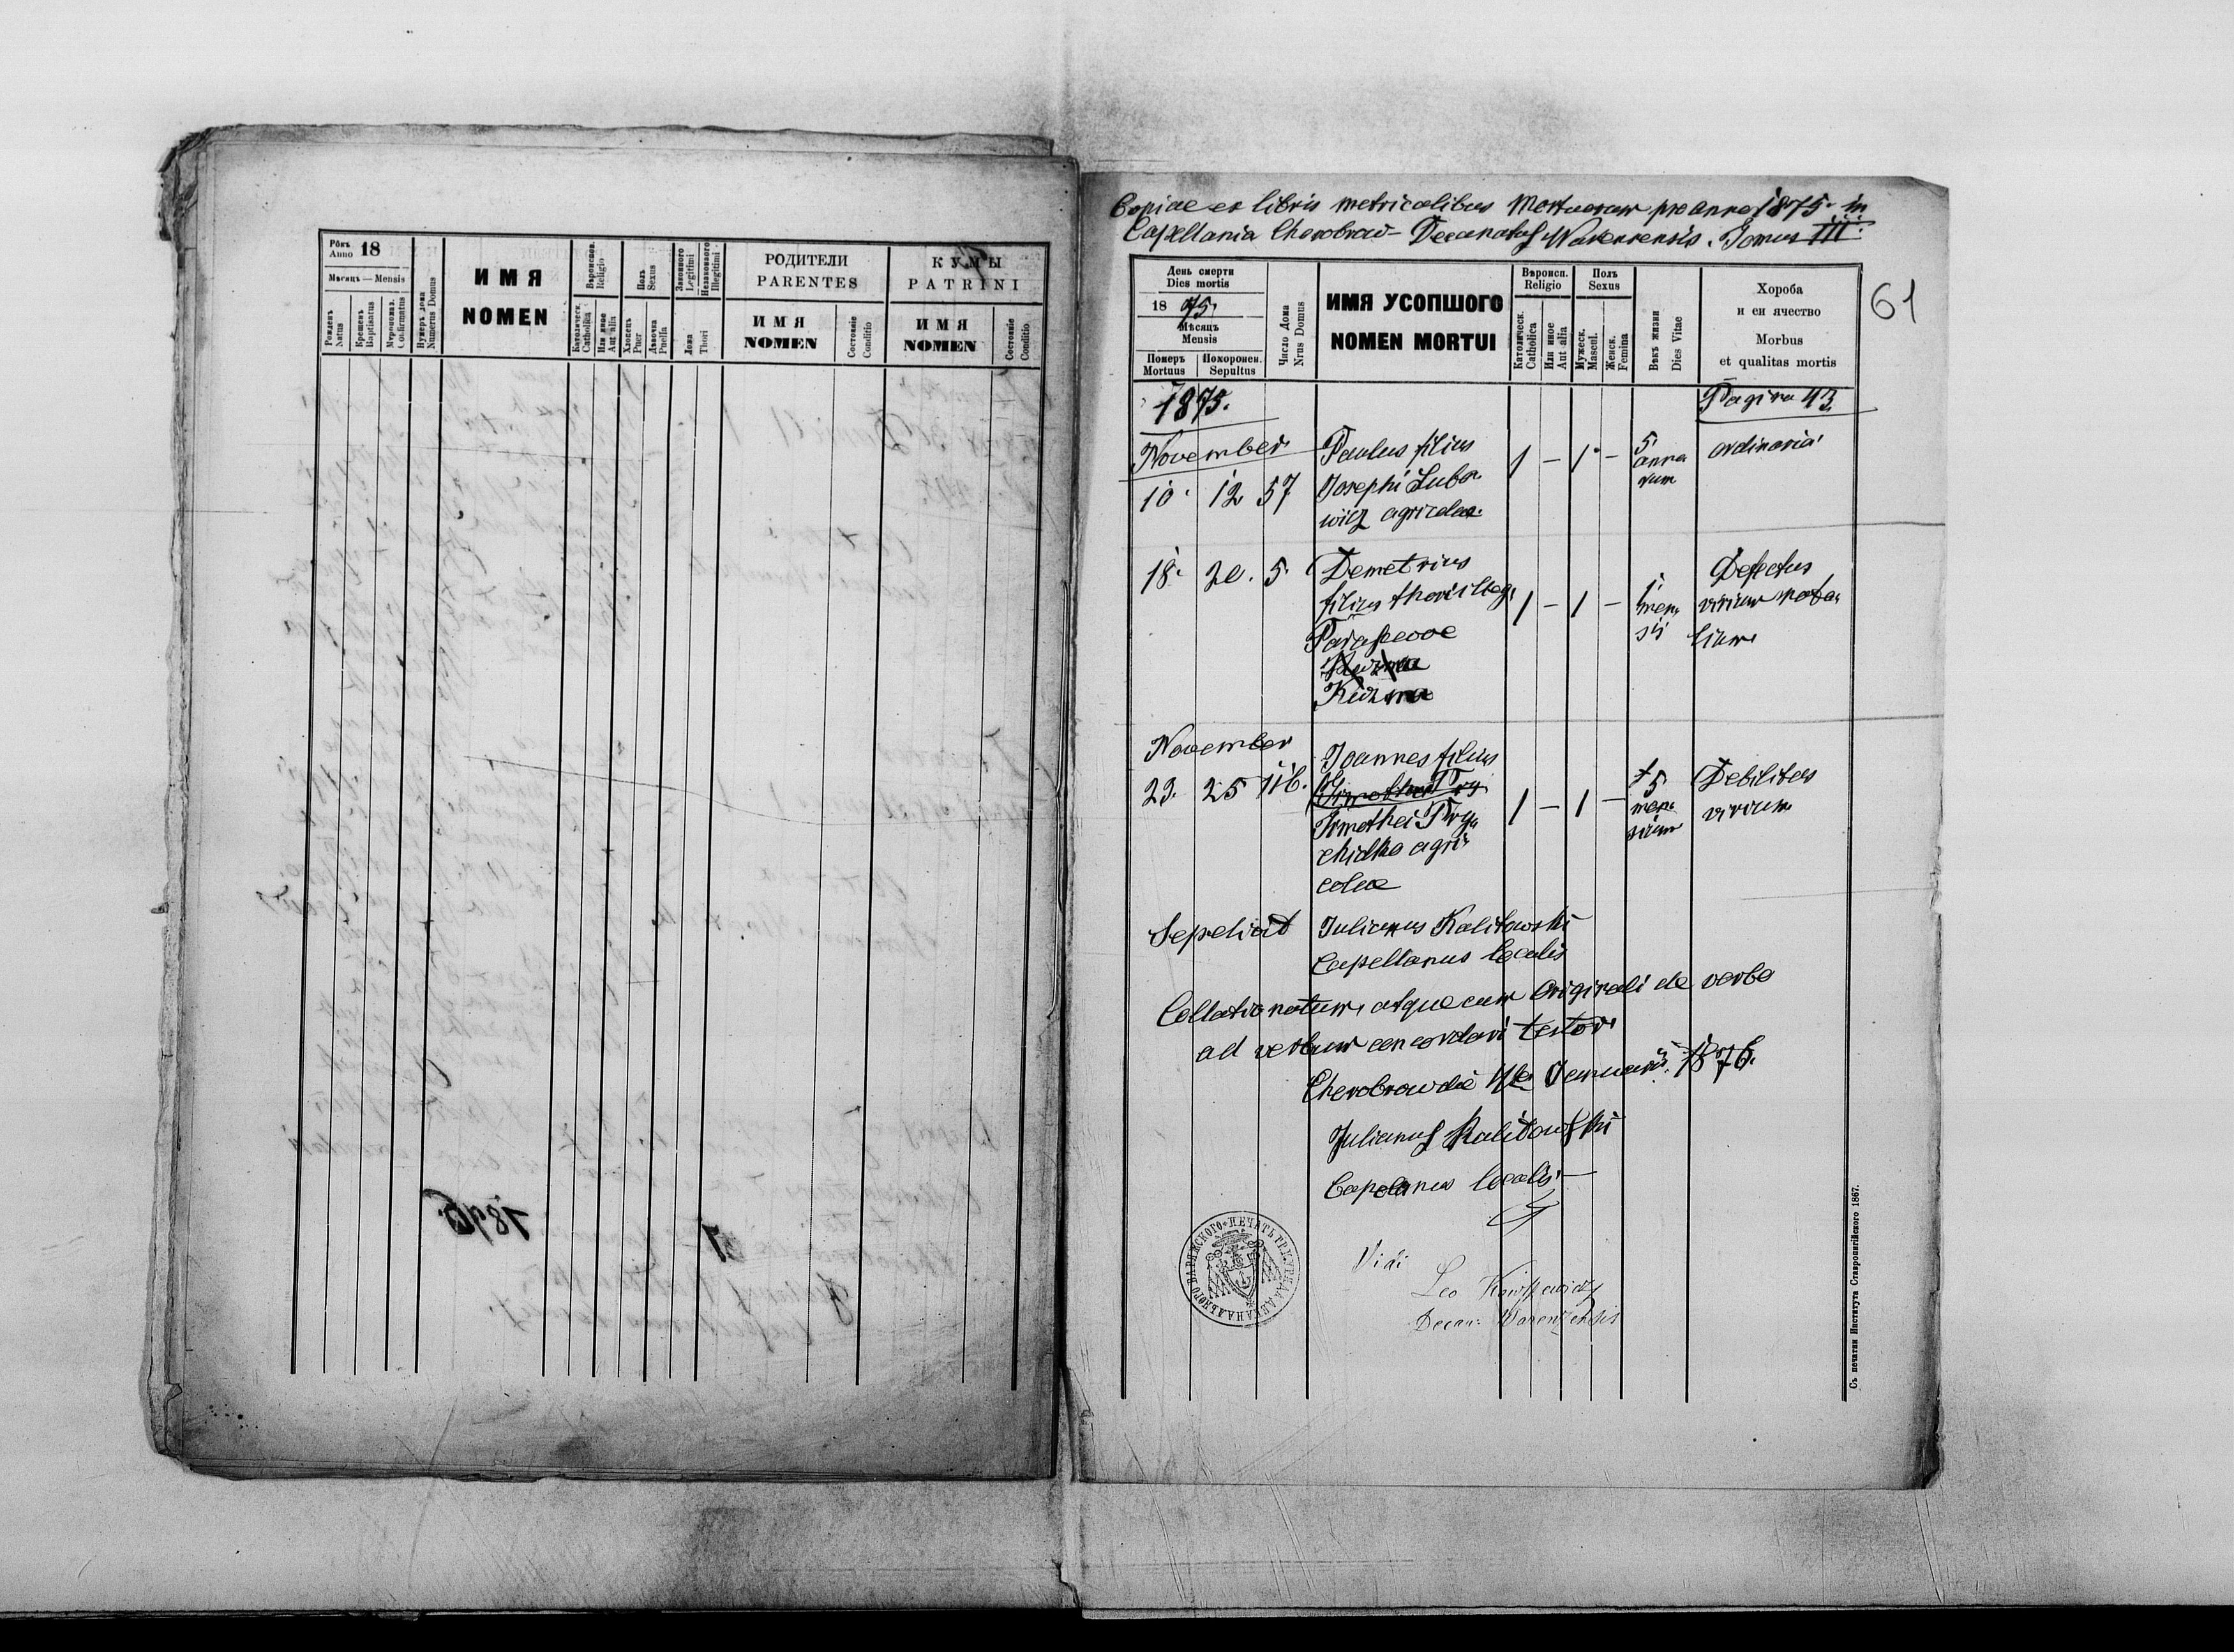 Рôкъ
Anno 18
Мѣсяць — Mensis
Рожденъ
Natus
Крещенъ
Baptisatus
Мνропомаз.
Confirmatus
Нумеръ дома
Numerus Domus
ИМЯ
NOMEN
Вѣроиспов.
Religio
Католическ.
Catholica
Или иное
Aut alia
Полъ
Sexus
Хлопецъ
Puer
Дѣвочка
Puella
Законного
Legitimi
Незаконного
Illegitimi
Ложа
Thori
РОДИТЕЛИ
PARENTES
ИМЯ
NOMEN
Состояніе
Conditio
КУМЫ
PATRINI
ИМЯ
NOMEN
Состояніе
Conditio
Copiae ex libris metricalibus Mortuorum pro anno 1875 in
Capellania Chorobrow - Decanatus Warensensis. Tomus III.
61
День смерти
Dies mortis
1875.
Мѣсяцъ
Mensis
Померъ
Mortuus
Похоронен.
Sepultus
Число Дома
Nrus Domus
ИМЯ УСОПШОГО
NOMEN MORTUI
Вѣроисп.
Religio
Католическ.
Catholica
Или иное
Aut alia
Полъ
Sexus
Мужеск.
Mascul.
Женск.
Femina
Вѣкъ жизни
Dies Vitae
Хороба
и еи ячество
Morbus
et qualitas mortis
1875.
Pagina 43
November
Paulus filius
10. 12 57 Josephi Luba-
wicz agricolae.
1 - 1 -
5
anno
rum
ordinaria
18. 20. 5. Demetrius
filius thori illeg.
Parascevae
Kuzma
1 - 1 -
1
men-
sis
Defectus
virium nata-
lium
November
Joannes filius
23. 25 116.
Timothei Try-
chidko agri-
colae
1 - 1 -
5
men-
sium
Debilitas
virium
Sepelivit Julianus Kalitowski
Capellanus localis
Collationatum, atque cum Originali de verbo
ad verbum concordari testor
Chorobrowdie Januarii 1876.
Julianus Kalitowski
Capelanus localis
Vidi
Leo
Decan: Warenzensis
ПЕЧАТЬ ГР. К. УРЯДА ДЕКАНАЛЬНОГО ВАРЯЖСКОГО
Съ печатни Института Ставропигійского 1867.